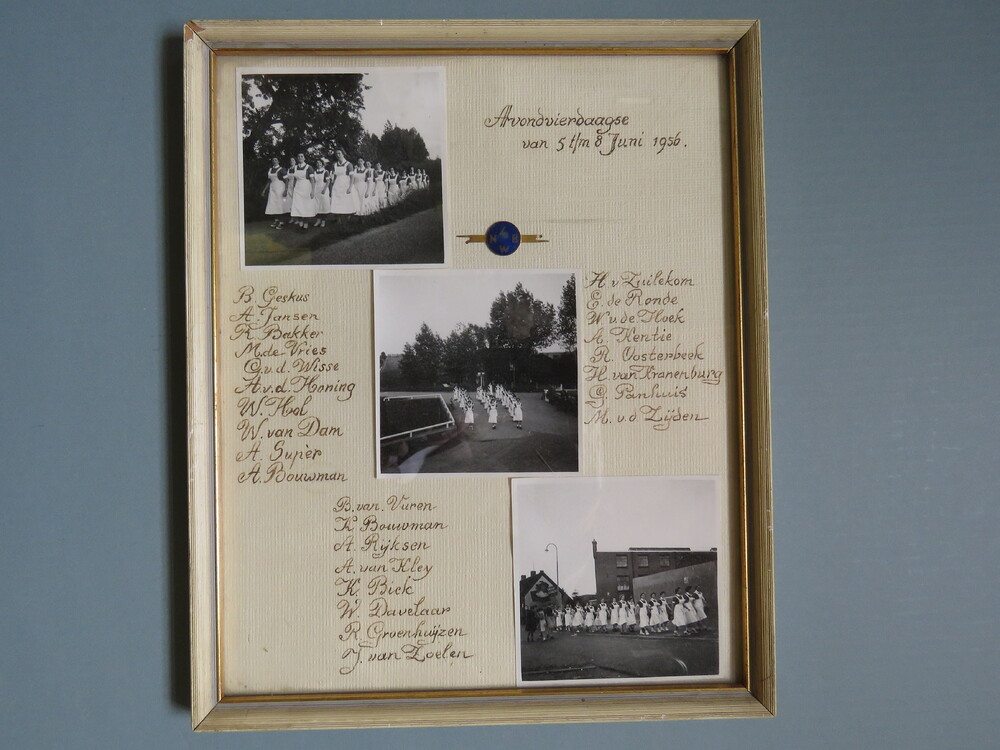 Avondvierdaagse
van 5 t/m 8 Juni 1956.
N B
W
B. Geskus
A. Jansen
R. Bakker
M. de Vries
C. v. d. Wisse
A. v. d. Honing
W. Hol
W. van Dam
A. Supèr
A. Bouwman
H. v Zuilekom
E. de Ronde
W. v. de Hoek
A. Kentie
R. Oosterbeek
H. van Kranenburg
G. Panhuis
M. v. d. Zijden
B. van. Vuren
K. Bouwman
A. Rijksen
A. van Kley
K. Bick
W. Davelaar
R. Groenhuijzen
J. van Zoelen